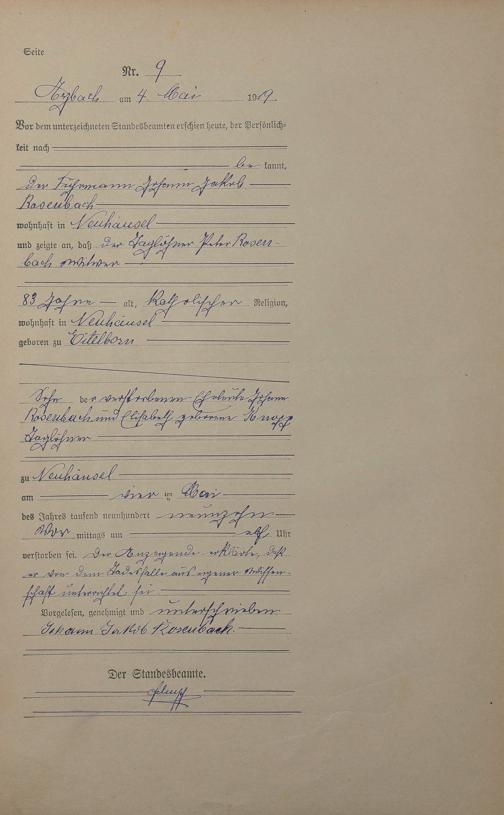 Seite
Nr. 9
Arzbach am 4 Mai 1919.
Vor dem unterzeichneten Standesbeamten erschien heute, der Persönlich-
keit nach
be kannt,
der Fuhrmann Johann Jakob
Rosenbach
wohnhaft in Neuhäusel
und zeigte an, daß der Taglöhner Peter Rosen-
bach Witwer
83 Jahre alt, katholischer Religion,
wohnhaft in Neuhäusel
geboren zu Eitelborn
Sohn der verstorbenen Eheleute Johann
Rosenbach und Elisabeth geborene Knopp
Taglöhner
zu Neuhäusel
am vier ten Mai
des Jahres tausend neunhundert neunzehn
Vor mittags um elf Uhr
verstorben sei. Der Anzeigende erklärte, daß
er von dem Todesfalle aus eigener Wissen-
schaft unterrichtet sei
Vorgelesen, genehmigt und unterschrieben
Johann Jakob Rosenbach.
Der Standesbeamte.